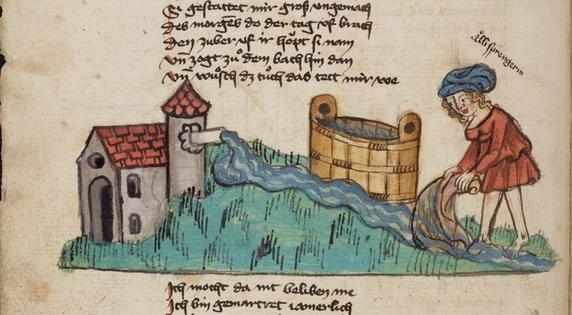 Si gestattet mir groß ungemach
Des morges do der tag vf brach
Den zuber vf ir höpt si nam
Vn̄ zogt zů dem bach hin dan
Vn̄ wůsch dz tůch das tett mir we
sprengerin
Ich mocht da nit beliben me
Ich bin gemartret